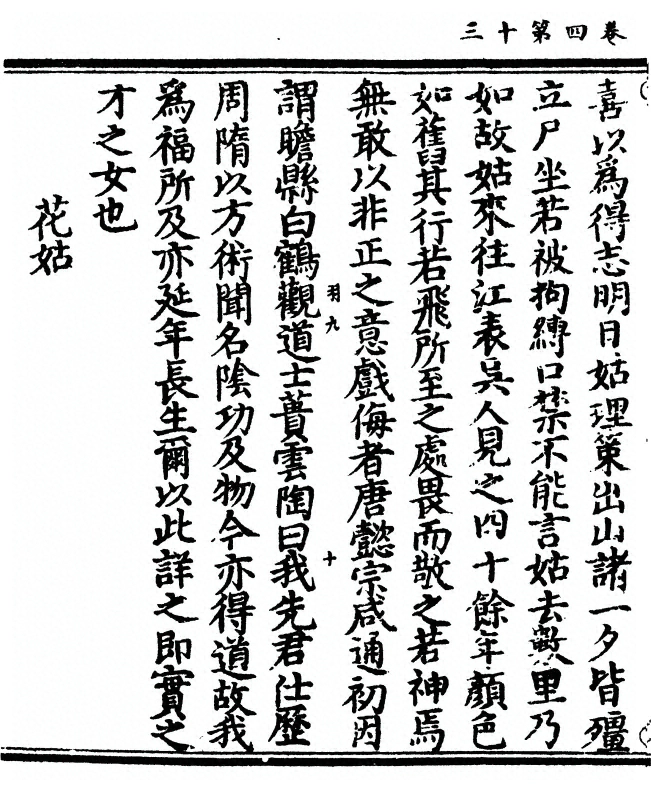 三十第四卷
喜以為得志明日姑理策出山諸一夕皆殭
立尸坐若被拘縛口禁不能言姑去數里乃
如故姑來往江表吳人見之四十餘年顏色
如舊其行若飛所至之處畏而敬之若神焉
無敢以非正之意戲侮者唐懿宗咸通初因
謂瞻縣白鶴觀道士蕢雲陶曰我先君仕歷
羽九
十
周隋以方術聞名陰功及物今亦得道故我
為福所及亦延年長生爾以此詳之即實之
才之女也
花姑